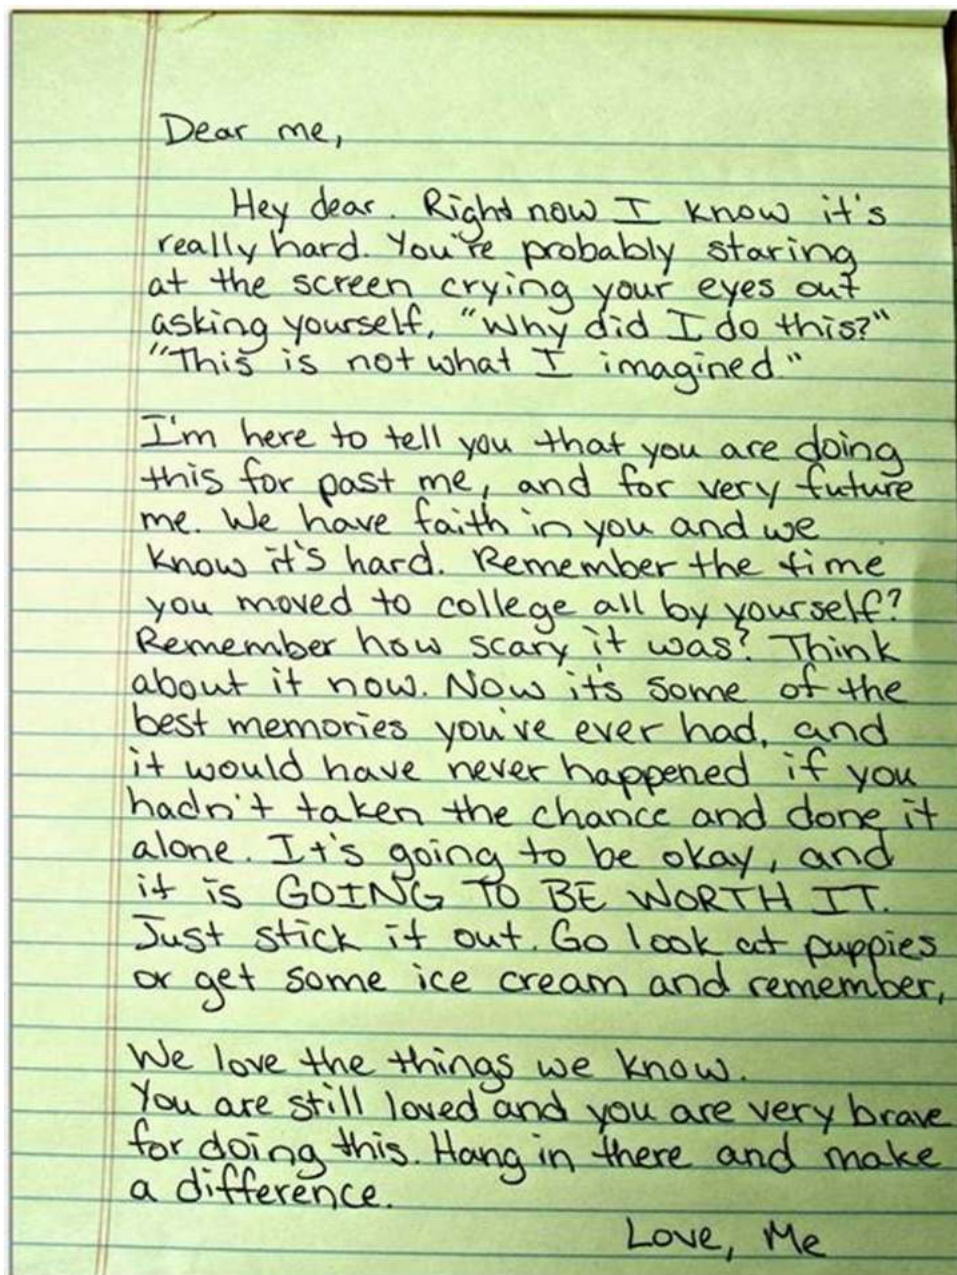 Dear me,
Hey dear. Right now I know it's
really hard. You're probably staring
at the screen crying your eyes out
asking yourself, "Why did I do this?"
"This is not what I imagined"
I'm here to tell you that you are doing
this for past me, and for very future
me. We have faith in you and we
know it's hard. Remember the time
you moved to college all by yourself?
Remember how scary it was? Think
about it now. Now it's some of the
best memories you've ever had, and
it would have never happened if you
hadn't taken the chance and done it
alone. It's going to be okay, and
it is GOING TO BE WORTH IT.
Just stick it out. Go look at puppies
or get some ice cream and remember,
We love the things we know.
You are still loved and you are very brave
for doing this. Hang in there and make
a difference.
Love, Me